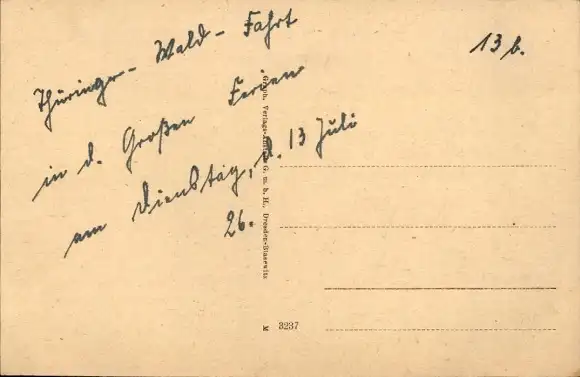 13 b.
Thüringer-Wald-Fahrt
in d. Großen Ferien
am Dienstag, d. 13 Juli
26.
Graph. Verlags-Anstalt G. m. b. H., Dresden-Blasewitz
M 3237